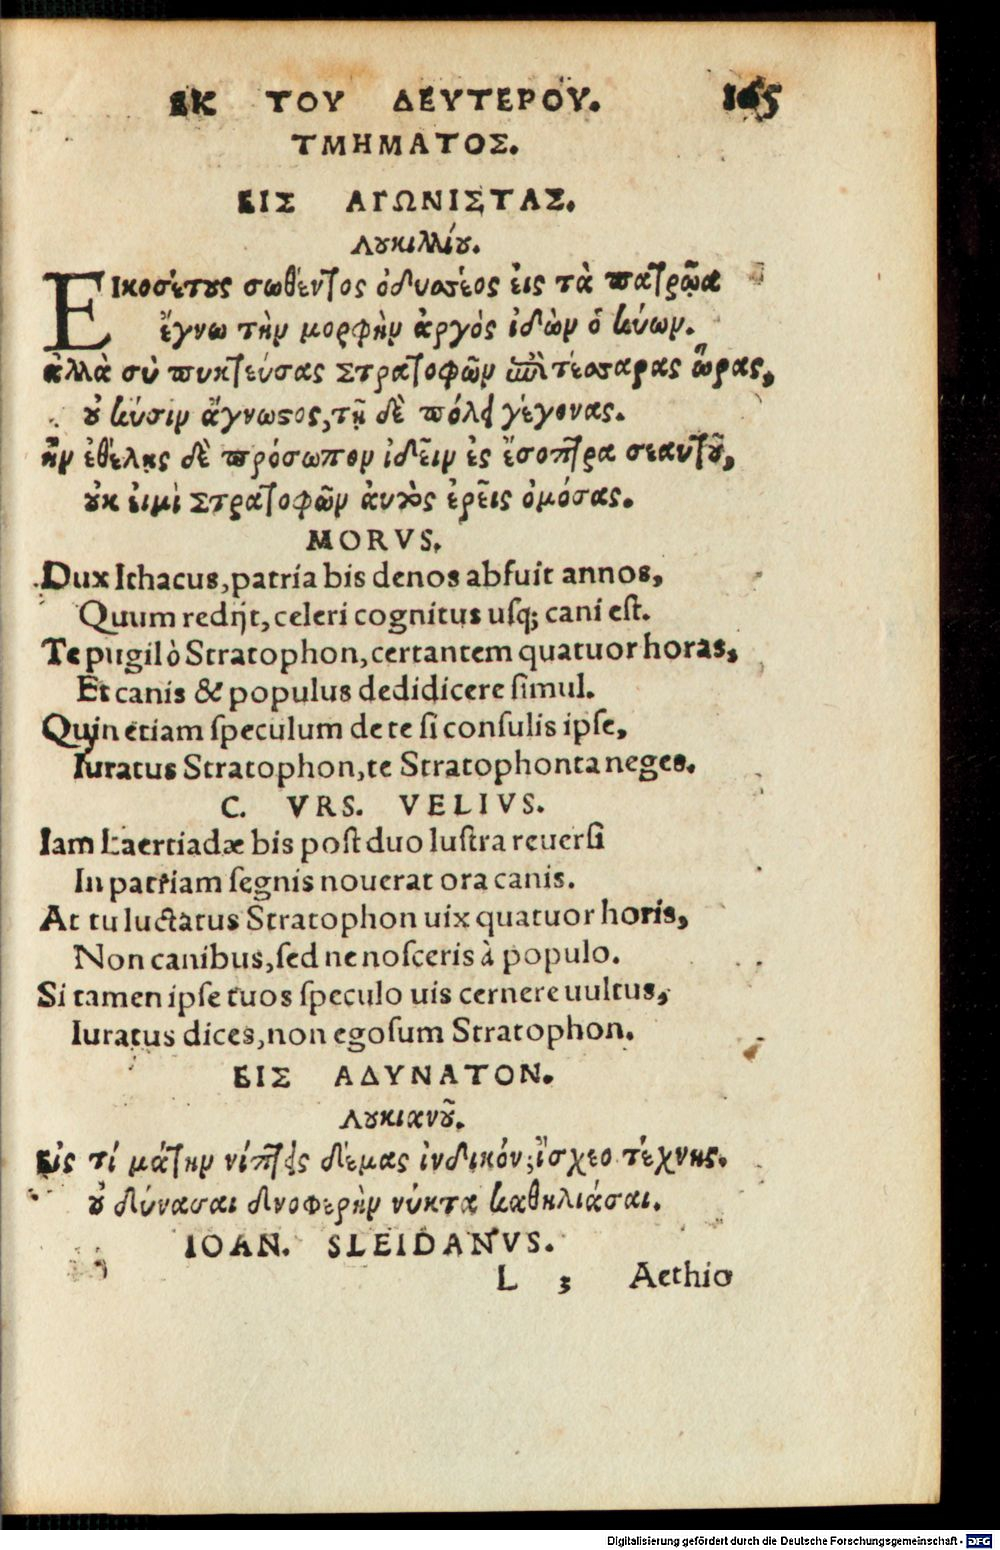 ΕΚ ΤΟΥ ΔΕΥΤΕΡΟΥ. 165
ΤΜΗΜΑΤΟΣ.
ΕΙΣ ΑΓΩΝΙΣΤΑΣ.
Λουκιλλίου.
Εἰκοσέτους σωθέντος ὀδυσσέος εἰς τὰ πατρῷα
ἔγνω τὴν μορφὴν ἀργὸς ἰδὼν ὁ κύων.
ἀλλὰ σὺ πυκτεύσας Στρατοφῶν ἐπὶ τέσσαρας ὥρας,
οὐ κύσιν ἄγνωστος, τῇ δὲ πόλει γέγονας.
ἢν ἐθέλῃς δὲ πρόσωπον ἰδεῖν ἐς ἔσοπτρα σεαυτοῦ,
οὐκ εἰμὶ Στρατοφῶν αὐτὸς ἐρεῖς ὀμόσας.
MORVS.
Dux Ithacus, patria bis denos abfuit annos,
Quum redijt, celeri cognitus usq; cani est.
Te pugil ò Stratophon, certantem quatuor horas,
Et canis & populus dedidicere simul.
Quin etiam speculum de te si consulis ipse,
Iuratus Stratophon, te Stratophonta neges.
C. VRS. VELIVS.
Iam Laertiadæ bis post duo lustra reuersi
In patriam segnis nouerat ora canis.
At tu luctatus Stratophon uix quatuor horis,
Non canibus, sed ne nosceris à populo.
Si tamen ipse tuos speculo uis cernere uultus,
Iuratus dices, non ego sum Stratophon.
ΕΙΣ ΑΔΥΝΑΤΟΝ.
Λουκιανοῦ.
Εἰς τί μάτην νίπτεις δέμας ἰνδικόν; ἴσχεο τέχνης.
οὐ δύνασαι δνοφερὴν νύκτα καθηλιάσαι.
IOAN. SLEIDANVS.
L 3 Aethio
Digitalisierung gefördert durch die Deutsche Forschungsgemeinschaft - DFG